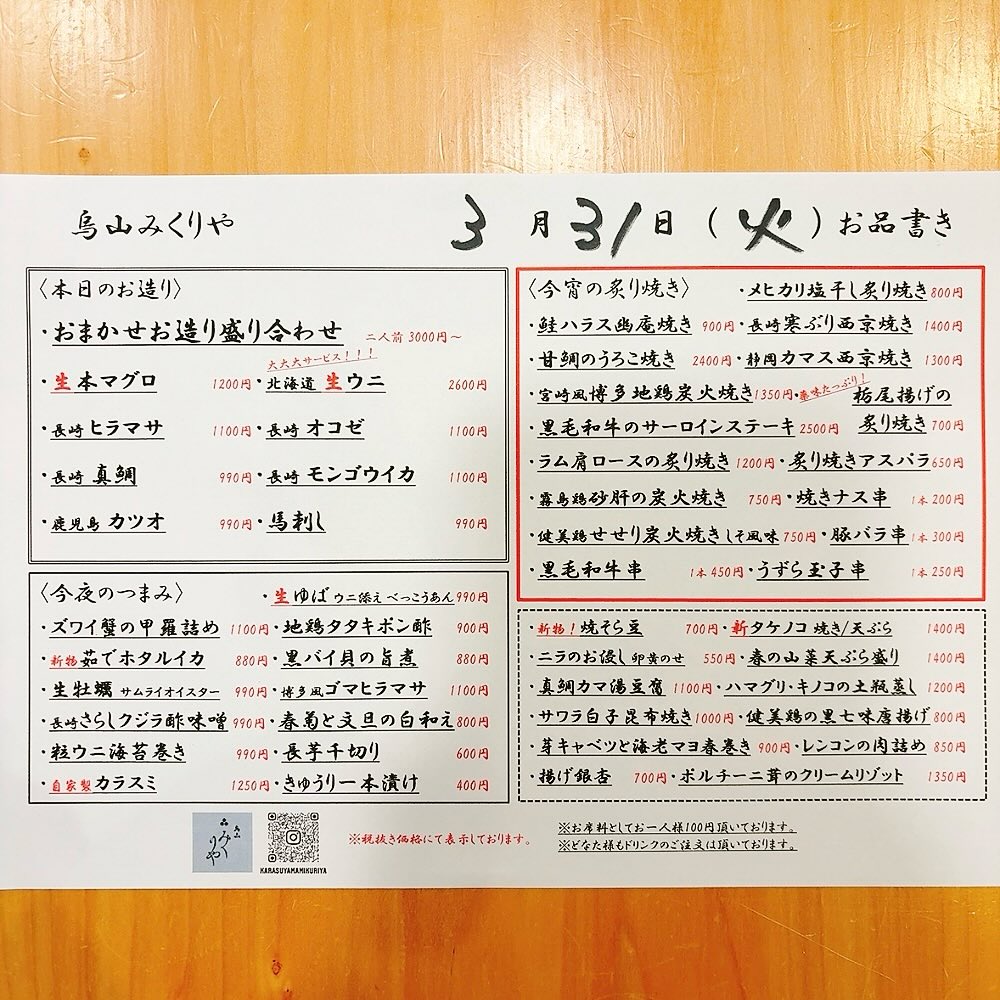 烏山みくりや 3月31日(火)お品書き
〈本日のお造り〉
・おまかせお造り盛り合わせ 二人前 3000円〜
大大大サービス!!!
・生本マグロ 1200円・北海道 生ウニ 2600円
・長崎 ヒラマサ 1100円・長崎 オコゼ 1100円
・長崎 真鯛 990円・長崎 モンゴウイカ 1100円
・鹿児島 カツオ 990円・馬刺し 990円
〈今夜のつまみ〉 ・生ゆば ウニ添え べっこうあん 990円
・ズワイ蟹の甲羅詰め 1100円・地鶏タタキポン酢 900円
・新物茹でホタルイカ 880円・黒バイ貝の旨煮 880円
・生牡蠣 サムライオイスター 990円・博多風ゴマヒラマサ 1100円
・長崎さらしクジラ酢味噌 990円・春菊と文旦の白和え 800円
・粒ウニ海苔巻き 990円・長芋千切り 600円
・自家製カラスミ 1250円・きゅうり一本漬け 400円
〈今宵の炙り焼き〉 ・メヒカリ塩干し炙り焼き 800円
・鮭ハラス幽庵焼き 900円・長崎寒ぶり西京焼き 1400円
・甘鯛のうろこ焼き 2400円・静岡カマス西京焼き 1300円
・宮崎風博多地鶏炭火焼き 1350円・薬味たっぷり! 栃尾揚げの
・黒毛和牛のサーロインステーキ 2500円 炙り焼き 700円
・ラム肩ロースの炙り焼き 1200円・炙り焼きアスパラ 650円
・霧島鶏砂肝の炭火焼き 750円・焼きナス串 1本 200円
・健美鶏せせり炭火焼きしそ風味 750円・豚バラ串 1本 300円
・黒毛和牛串 1本 450円・うずら玉子串 1本 250円
・新物!焼そら豆 700円・新タケノコ 焼き/天ぷら 1400円
・ニラのお浸し 卵黄のせ 550円・春の山菜天ぷら盛り 1400円
・真鯛カマ湯豆腐 1100円・ハマグリ・キノコの土瓶蒸し 1200円
・サワラ白子昆布焼き 1000円・健美鶏の黒七味唐揚げ 800円
・芽キャベツと海老マヨ春巻き 900円・レンコンの肉詰め 850円
・揚げ銀杏 700円・ポルチーニ茸のクリームリゾット 1350円
烏山 みくりや
KARASUYAMAMIKURIYA
※税抜き価格にて表示しております。
※お席料としてお一人様100円頂いております。
※どなた様もドリンクのご注文は頂いております。